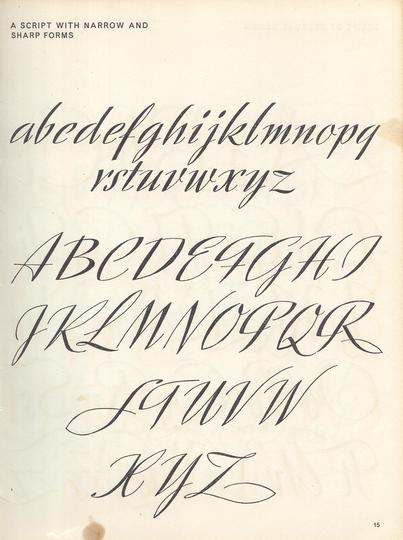 A SCRIPT WITH NARROW AND
SHARP FORMS
abcdefghijklmnopq
rstuvwxyz
ABCDEFGHI
JKLMNOPQR
STUVW
XYZ
15